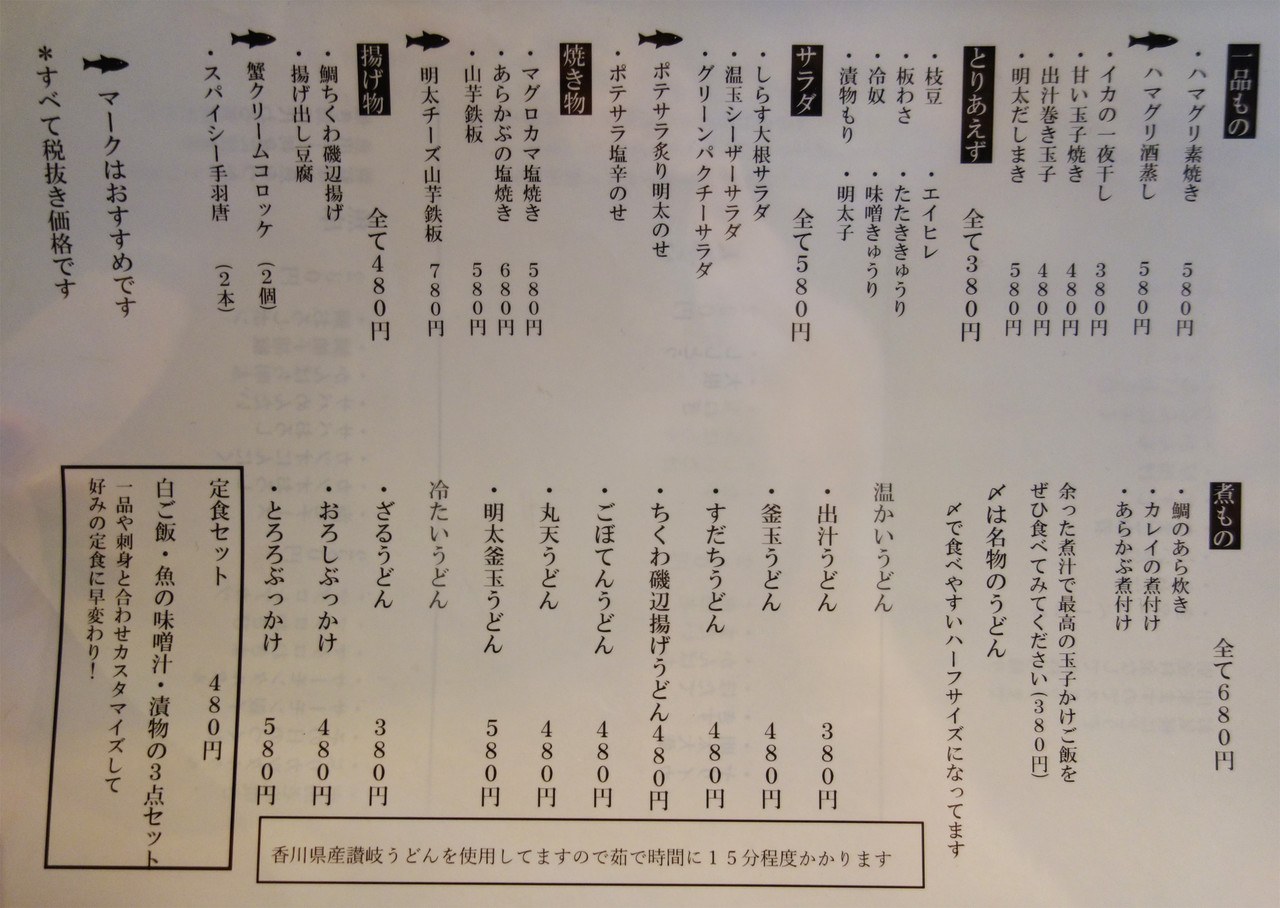 一品もの
・ハマグリ素焼き 580円
ハマグリ酒蒸し 580円
・イカの一夜干し 380円
・甘い玉子焼き 480円
・出汁巻き玉子 480円
・明太だしまき 580円
とりあえず 全て380円
・枝豆 ・エイヒレ
・板わさ ・たたききゅうり
・冷奴 ・味噌きゅうり
・漬物もり ・明太子
サラダ 全て580円
・しらす大根サラダ
・温玉シーザーサラダ
・グリーンパクチーサラダ
ポテサラ炙り明太のせ
・ポテサラ塩辛のせ
焼き物
・マグロカマ塩焼き 580円
・あらかぶの塩焼き 680円
・山芋鉄板 580円
明太チーズ山芋鉄板 780円
揚げ物 全て480円
・鯛ちくわ磯辺揚げ
・揚げ出し豆腐
蟹クリームコロッケ (2個)
・スパイシー手羽唐 (2本)
マークはおすすめです
*すべて税抜き価格です
煮もの 全て680円
・鯛のあら炊き
・カレイの煮付け
・あらかぶ煮付け
余った煮汁で最高の玉子かけご飯を
ぜひ食べてみてください(380円)
〆は名物のうどん
〆で食べやすいハーフサイズになってます
温かいうどん
・出汁うどん 380円
・釜玉うどん 480円
・すだちうどん 480円
・ちくわ磯辺揚げうどん480円
・ごぼてんうどん 480円
・丸天うどん 480円
・明太釜玉うどん 580円
冷たいうどん
・ざるうどん 380円
・おろしぶっかけ 480円
・とろろぶっかけ 580円
香川県産讃岐うどんを使用してますので茹で時間に15分程度かかります
定食セット 480円
白ご飯・魚の味噌汁・漬物の3点セット
一品や刺身と合わせカスタマイズして
好みの定食に早変わり!